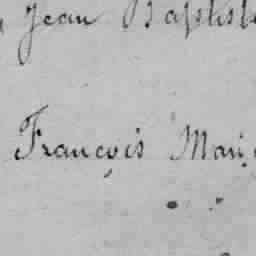 Jean Baptist
François Mari